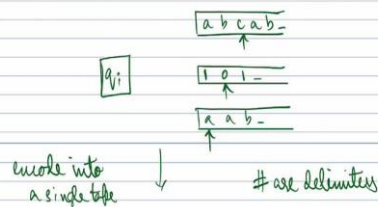 a b c a b _
qi
1 0 1 _
a a b _
encode into
a single tape
# are delimiters